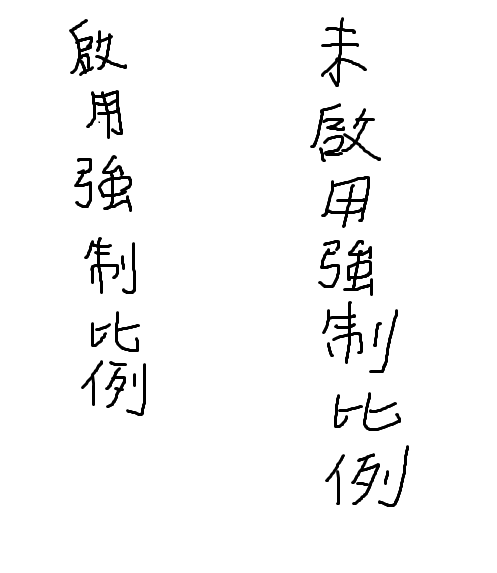 未啟用強制比例
啟用強制比例